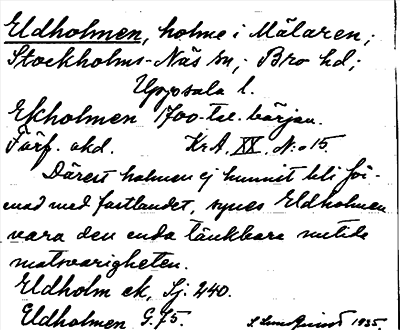 Eldholmen, holme i Mälaren;
Stockholms-Näs sn,; Bro hd;
Uppsala l.
Ekholmen 1700-tal. början.
Förf. okd. Kr.A. XX. N:o 15.
Därest holmen ej hunnit bli för-
enad med fastlandet, synes Eldholmen
vara den enda tänkbara nutida
motsvarigheten.
Eldholm ek, Sj. 240.
Eldholmen G.75. 1935.